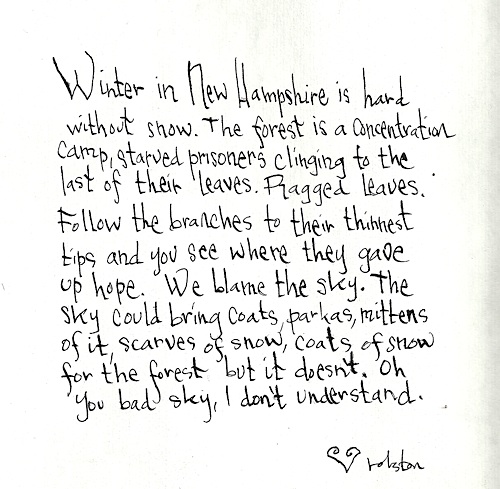 Winter in New Hampshire is hard
without snow. The forest is a concentration
camp, starved prisoners clinging to the
last of their leaves. Ragged leaves.
Follow the branches to their thinnest
tips and you see where they gave
up hope. We blame the sky. The
sky could bring coats, parkas, mittens
of it, scarves of snow, coats of snow
for the forest but it doesn't. Oh
you bad sky, I don't understand.
rolston